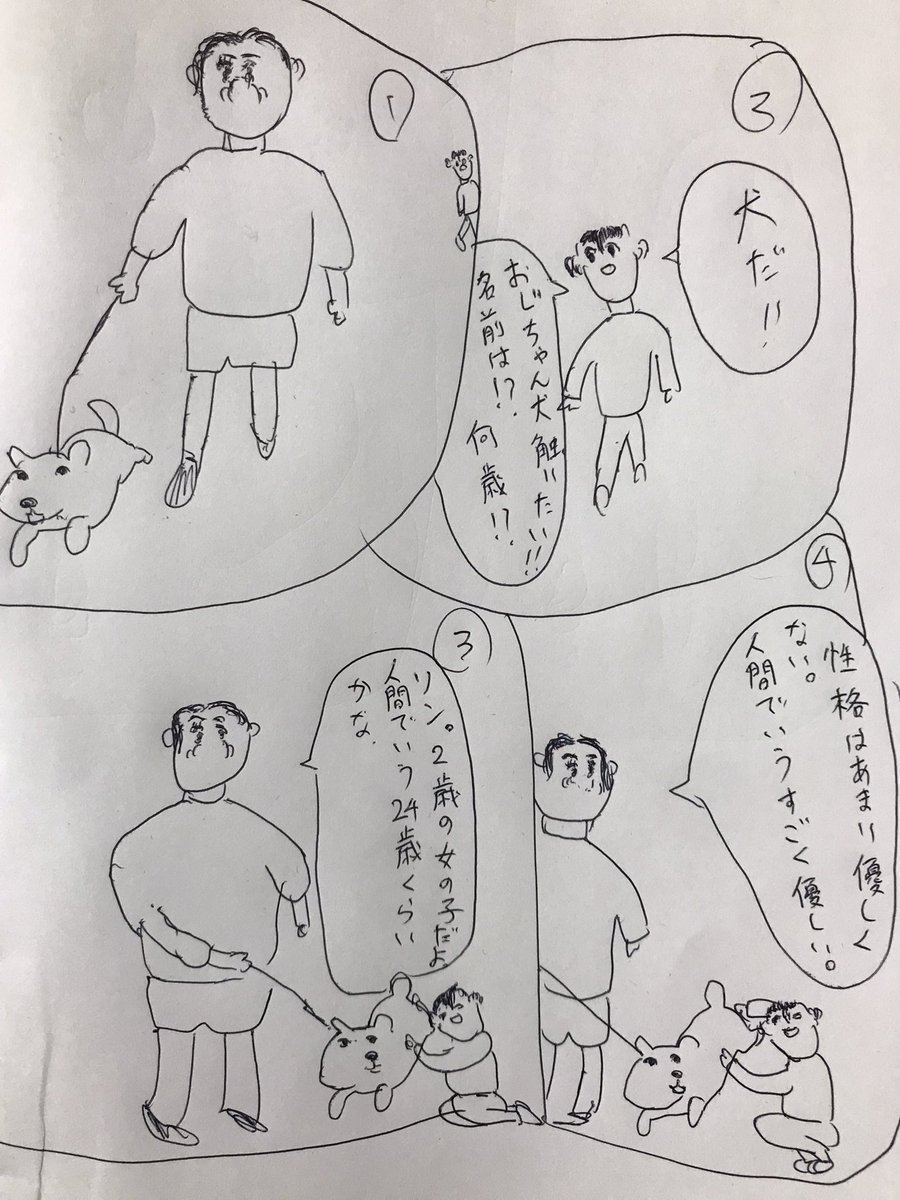 ①
②
犬だ!!
おじちゃん犬触りたい!!
名前は!? 何歳!?
③
リン。2歳の女の子だよ
人間でいう24歳くらい
かな.
④
性格はあまり優しく
ない。
人間でいうすごく優しい。